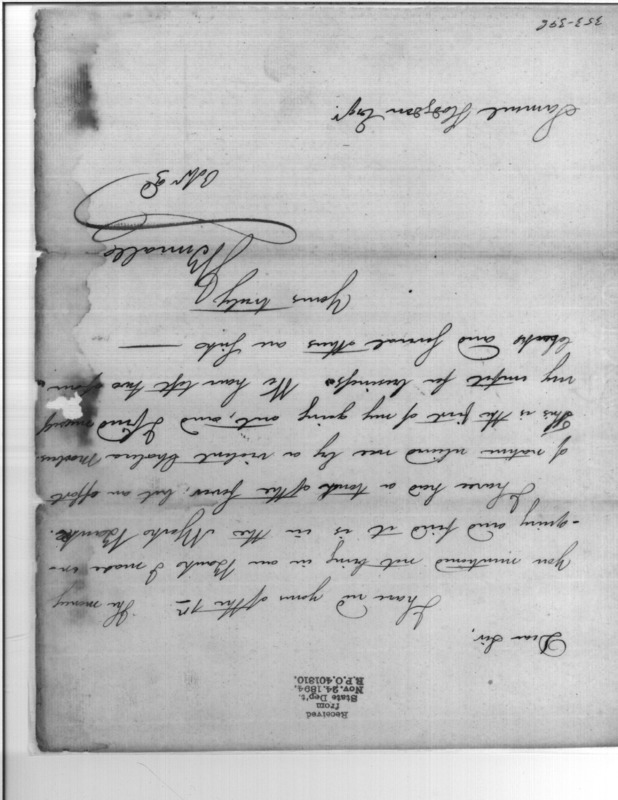 Received
from
State Dep't.
Nov. 24. 1894.
R.P.O. 401810.
Dear Sir,
I have yours of the 7th The money
you mentioned not being in our Bank I made in-
-quiry and find it is in the N York Bank.
I have had a touch of the fever; but an effort
of nature relieved me by a violent Cholera Morbus.
This is the first of my going out, and I find
my unfit for business We have two of our
Clerks and several others are sick —
Yours truly
Samuel Hodgson Esqr.
353-396